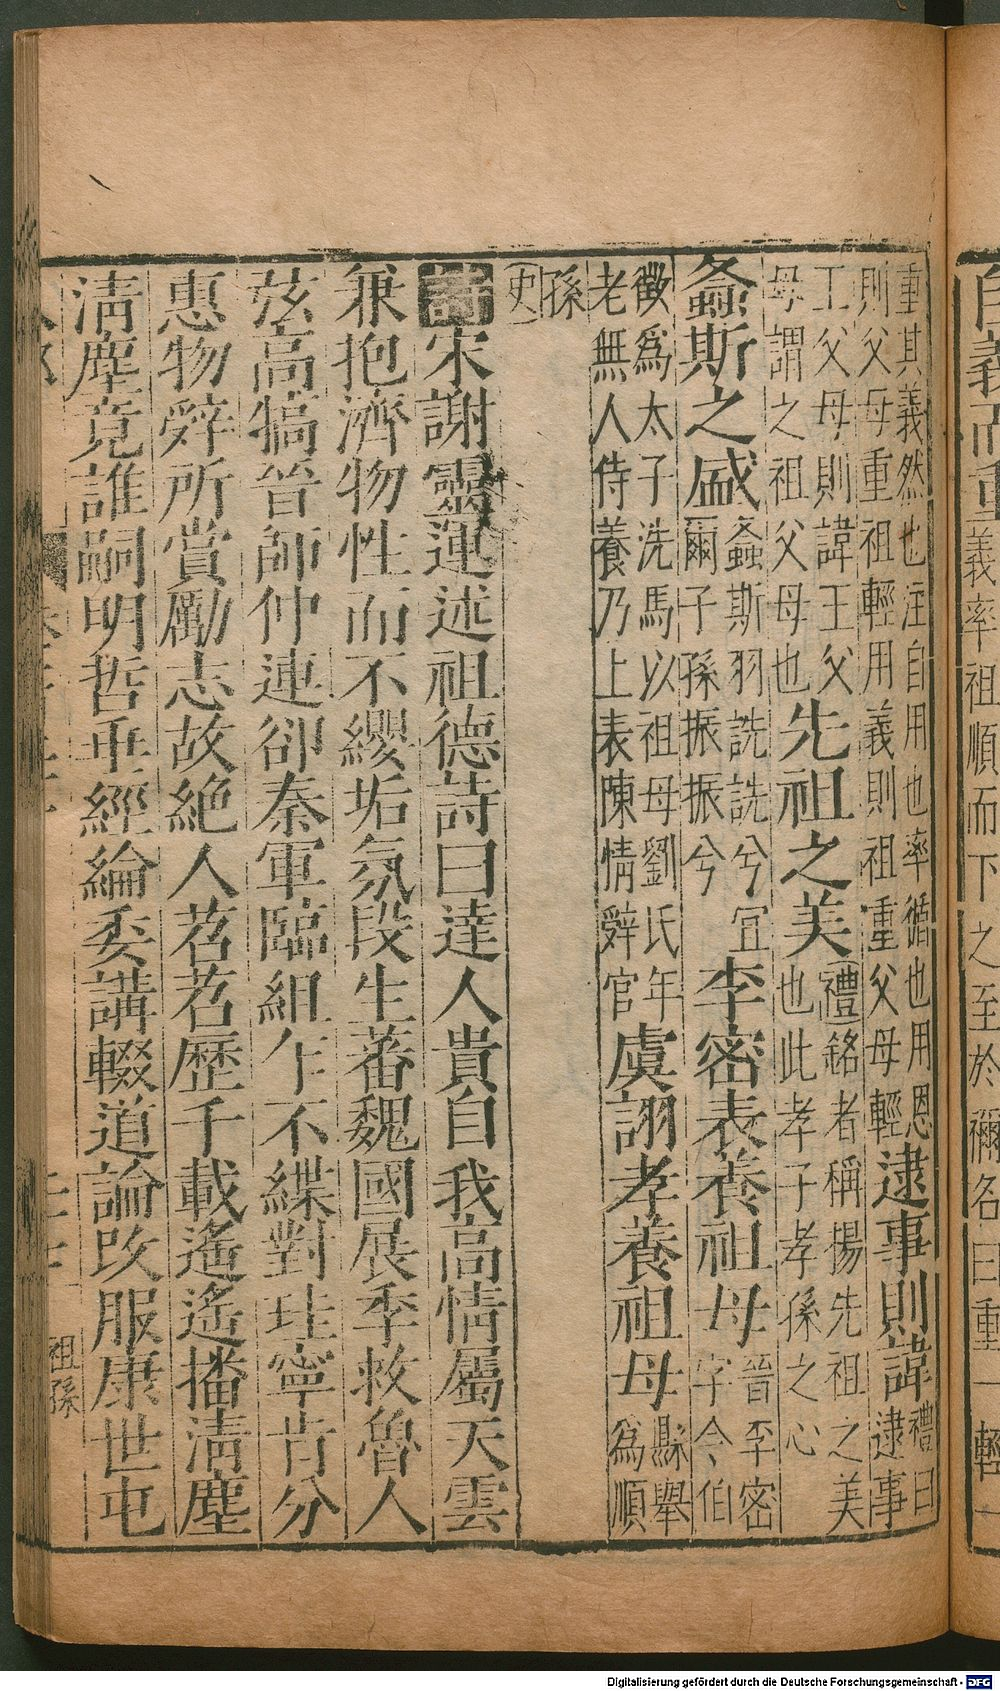 自義而重
義率祖順而下之至於禰名曰重一輕一
重其義然也注自用也率循也用恩
則父母重祖輕用義則祖重父母輕
逮事則諱
禮曰
逮事
王父母則諱王父
母謂之祖父母也
先祖之美
禮銘者稱揚先祖之美
也此孝子孝孫之心
螽斯之盛
螽斯羽詵詵兮宜
爾子孫振振兮
李密表養祖母
晉李密
字令伯
徵爲太子洗馬以祖母劉氏年
老無人侍養乃上表陳情辭官
虞詡孝養祖母
縣舉
爲順
孫
史
詩宋謝靈運述祖德詩曰達人貴自我高情屬天雲
兼抱濟物性而不纓垢氛段生蕃魏國展季救魯人
弦高犒晉師仲連卻秦軍臨組乍不緤對珪寧肯分
惠物辭所賞勵志故絕人苕苕歷千載遙遙播清塵
清塵竟誰嗣明哲垂經綸委講輟道論改服康世屯
祖孫
Digitalisierung gefördert durch die Deutsche Forschungsgemeinschaft - DFG